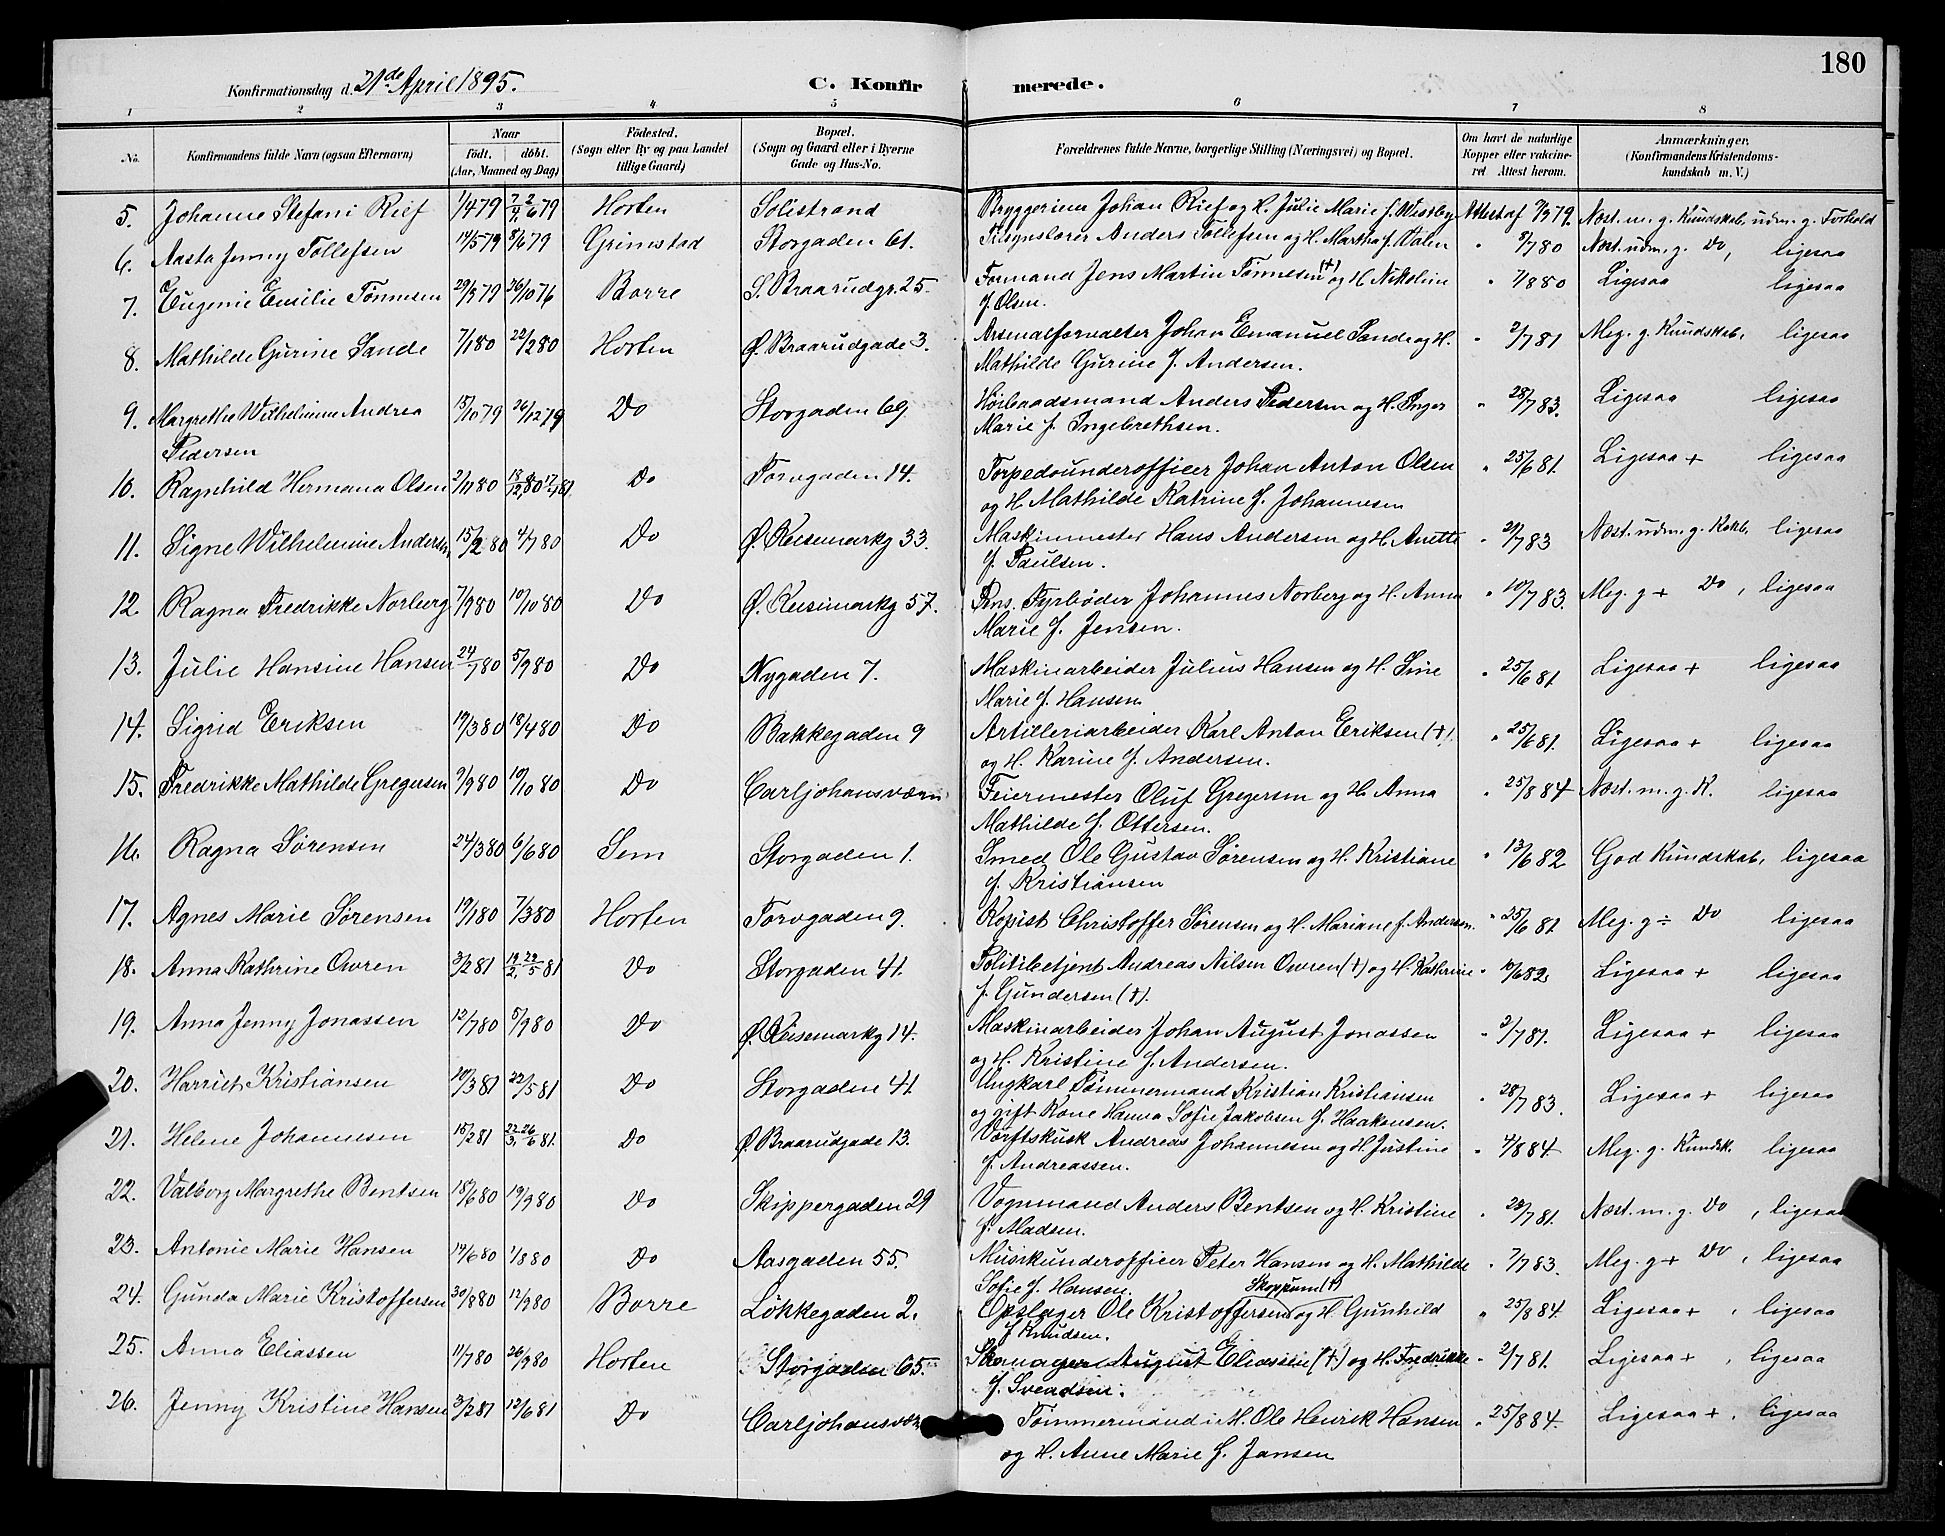 180
Konfirmationsdag d. 21de April 1895. C. Konfirmerede.
1 2 3 4 5 6 7 8
No. Konfirmandens fulde Navn (ogsaa Efternavn) Naar Født. döbt. (Aar, Maaned og Dag) Födested. (Sogn eller By og paa Landet tillige Gaard) Bopæl. (Sogn og Gaard eller i Byerne Gade og Hus-No.) Forældrenes fulde Navne, borgerlige Stilling (Næringsvei) og Bopæl. Om havt de naturlige Kopper eller vakcineret Attest herom. Anmærkninger. (Konfirmandens Kristendomskundskab m. V.)
5. Johanne Stefani Rief 1/4 79 2/6 79 Horten Solistrand Bryggerieier Johan Rief og H. Julie Marie f. Westby Attest af 7/9 79. Næst. m. g. Kundskab, udm. g. Forhold
6. Aasta Jenny Tollefsen 14/5 79 8/6 79 Grimstad Storgaden 61. Tilsynslærer Anders Tollefsen og H. Martha f. Dalen " 8/7 80 Næst. udm. g. Do, ligesaa
7. Eugenie Emilie Tønnesen 29/3 79 26/10 76 Borre S. Braarudgr. 25. Formand Jens Martin Tønnesen (†) og H. Nikoline " 7/8 80 Ligesaa ligesaa
f. Olsen.
8. Mathilde Gurine Sande 7/1 80 22/2 80 Horten Ø. Braarudgade 3. Arsenalforvalter Johan Emanuel Sande og H. " 2/7 81 Meg. g. Kundskab, ligesaa
Mathilde Gurine f. Andersen.
9. Margrethe Wilhelmine Andrea 15/10 79 26/12 79 Do Storgaden 69. Høibaadsmand Anders Pedersen og H. Inger " 28/7 83. Ligesaa ligesaa
Pedersen Marie f. Ingebrethsen.
10. Ragnhild Hermana Olsen 2/11 80 Do Torvgaden 14. Torpedounderofficer Johan Anton Olsen " 25/6 81. Ligesaa + ligesaa
og H. Mathilde Katrine f. Johannesen
11. Signe Wilhelmine Andersen 15/2 80 4/7 80 Do Ø. Keisemarkg 33. Maskinmester Hans Andersen og H. Anette " 21/7 83 Næst. udm. g. Kskb. ligesaa
f. Paulsen.
12. Ragna Fredrikke Norberg 7/9 80 10/10 80 Do Ø. Keisemarkg 57. Pens. Fyrbøder Johannes Norberg og H. Anna " 10/7 83. Meg. g + Do, ligesaa
Marie f. Jensen.
13. Julie Hansine Hansen 24/7 80 5/9 80 Do Nygaden 7. Maskinarbeider Julius Hansen og H. Sine " 25/6 81. Ligesaa + ligesaa
Marie f. Hansen
14. Sigrid Eriksen 19/3 80 18/4 80 Do Bakkegaden 9 Artilleriarbeider Karl Anton Eriksen (†). " 25/6 81. Ligesaa + ligesaa
og H. Karine f. Andersen.
15. Fredrikke Mathilde Gregersen 9/9 80 10/10 80 Do Carljohansværn Feiermester Oluf Gregersen og H. Anna " 25/8 84 Næst. m. g. K. ligesaa
Mathilde f. Ottersen.
16. Ragna Sørensen 24/3 80 6/6 80 Sem Storgaden 1. Smed Ole Gustav Sørensen og H. Kristiane " 13/6 82 God Kundskab, ligesaa
f. Kristiansen
17. Agnes Marie Sørensen 19/1 80 7/3 80 Horten Torvgaden 9. Kopist Christoffer Sørensen og H. Mariane f. Andersen. " 25/6 81 Meg. g ÷ Do ligesaa
18. Anna Kathrine Owren 3/2 81 Do Storgaden 41. Politibetjent Andreas Nilsen Owren (†) og H. Kathrine " 10/6 82. Ligesaa + ligesaa
f. Gundersen (†).
19. Anna Jenny Jonassen 12/7 80 5/9 80 Do Ø. Keisemarkg 14. Maskinarbeider Johan August Jonassen " 2/7 81. Ligesaa + ligesaa
og H. Kristine f. Andersen.
20. Harriet Kristiansen 10/3 81 22/5 81 Do Storgaden 41 Ungkarl Tømmermand Kristian Kristiansen " 28/7 83. Ligesaa + ligesaa
og gift Kone Hanna Sofie Jakobsen f. Haakensen.
21. Helene Johannesen 15/2 81 26/6 81. Do Ø. Braarudgade 13. Værftskusk Andreas Johannesen og H. Justine " 4/8 84. Meg. g. Kundsk. ligesaa
f. Andreassen.
22. Valborg Margrethe Bentsen 18/6 80 19/9 80 Do Skippergaden 29 Vognmand Anders Bentsen og H. Kristine " 23/7 81. Næst. m. g. Do, ligesaa
f. Madsen.
23. Antonie Marie Hansen 14/6 80 1/8 80 Do Aasgaden 55. Musikunderofficer Peter Hansen og H. Mathilde " 7/7 83. Meg. g + Do, ligesaa
Sofie f. Hansen. Skoppum (†)
24. Gunda Marie Kristoffersen 30/8 80 12/9 80 Borre Løkkegaden 2. Opslager Ole Kristoffersen og H. Gunhild " 25/8 84. Ligesaa +, ligesaa
f Knudsen.
25. Anna Eliassen 11/7 80 26/9 80 Horten Storgaden 65. Skomager August Eliassen (†) og H. Fredrikke " 2/7 81. Ligesaa +, ligesaa
f. Svendsen.
26. Jenny Kristine Hansen 3/2 81 12/6 81 Do Carljohansvær Tømmermand i M. Ole Henrik Hansen " 25/8 84. Ligesaa +, ligesaa
og H. Anne Marie f. Jansen